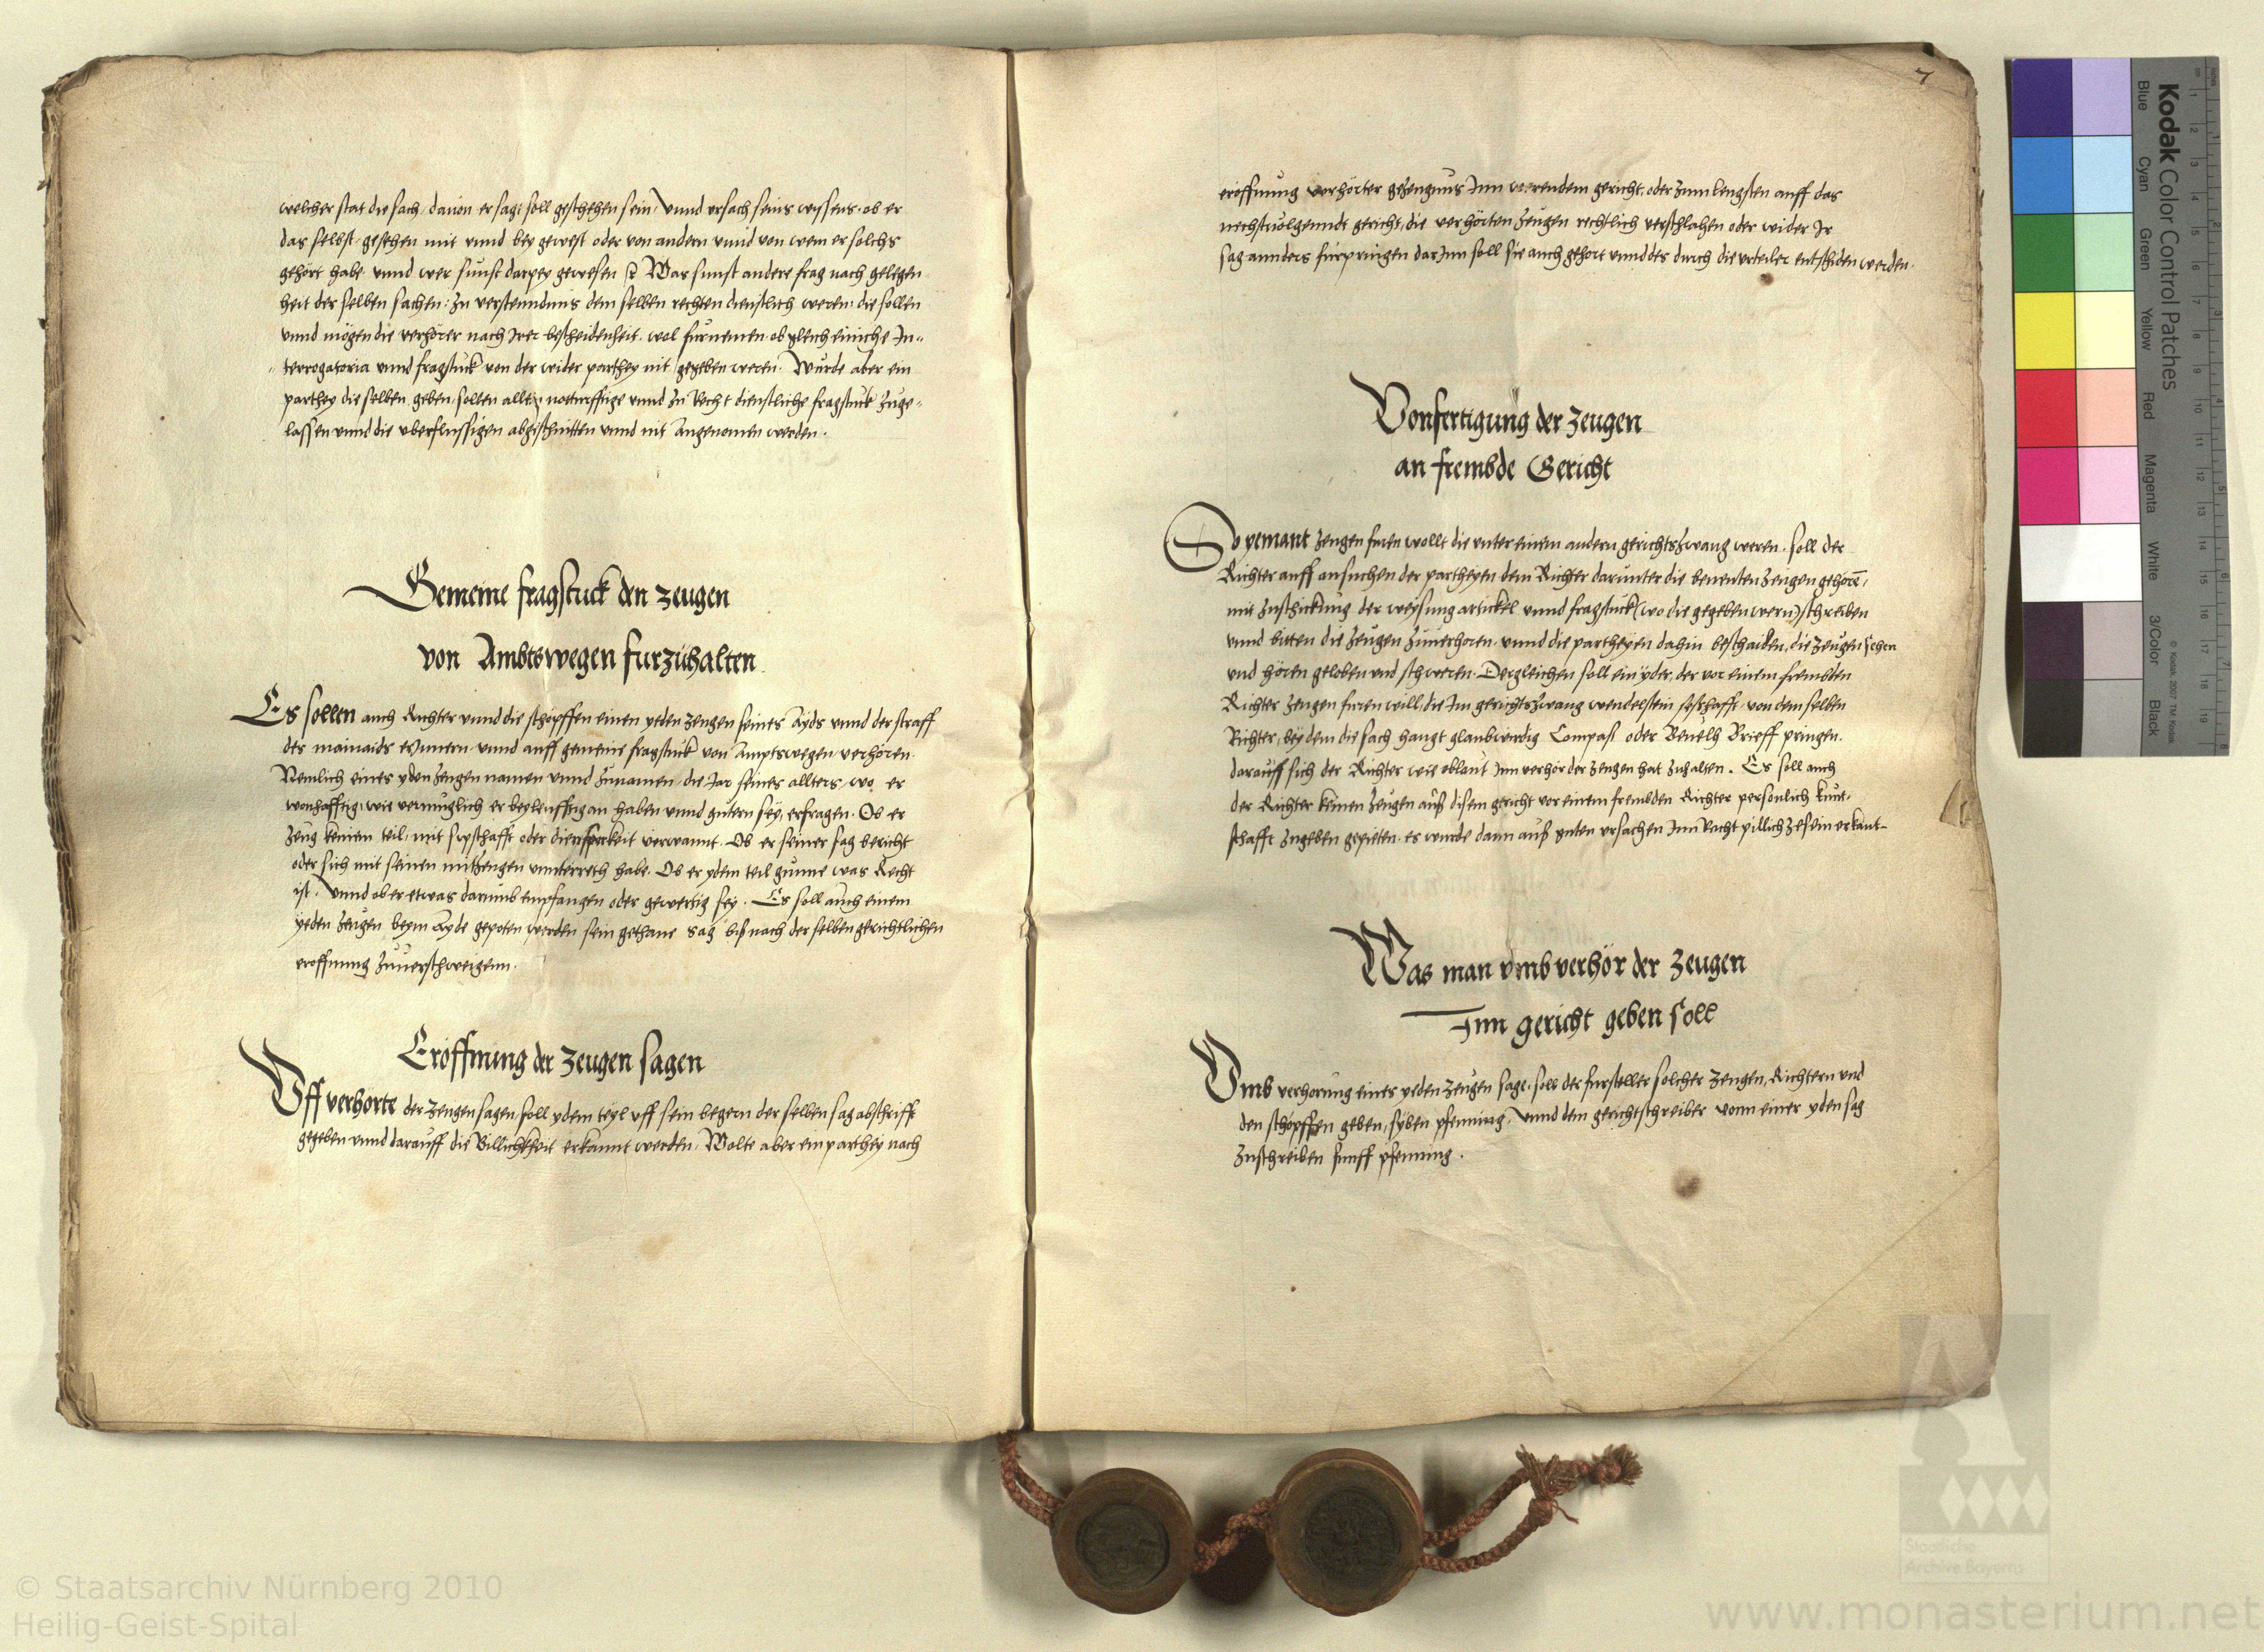 welcher stat die sach, dauon er sagt soll geschehen sein, Vnnd vrsach seins wissens. ob er
das selbst gesehen mit vnnd bey gewest oder von andern vnnd von wem er solchs
gehort habe vnnd wer sunst darpey gewesen Was sunst andere frag nach gelegen
heit der selben sachen zu verstenndnus dem selben rechten dienstlich weren die sollen
vnnd mögen die verhörer nach Irer bescheidenheit wol furnemen ob gleich einiche In-
terrogatoria vnnd fragstuck von der wider parthey nit gegeben weren. Wurde aber ein
parthey die selben geben sollen allein notturfftige vnnd zu Recht dienstliche fragstuck zuge-
lassen vnnd die vberflussigen abgeschnitten vnnd nit Angenomen werden.
Gemeine fragstuck den zeugen
von Ambtswegen furzuhalten
Es sollen auch Richter vnnd die schöpffen einen yeden zeugen seines Ayds vnnd der straff
des mainaids erynnern vnnd auff gemeine fragstuck von Amptswegen verhören.
Nemlich eines yden zeugen namen vnnd zunamen, die Jar seines allters, wo er
wonhafftig, wie vermuglich er beyleufftig an haben vnnd gutern sey, erfragen. Ob er
zeug keinem teil, mit sypschafft oder dienstperkeit verwannt. Ob er seiner sag bericht
oder sich mit seinen mitzeugen vnnterreth habe. Ob er ydem teil gunne was Recht
ist. Vnnd ob er etwas darumb empfangen oder gewertig sey. Es soll auch einem
yeden zeugen beym Ayde gepoten werden sein gethane sag biß nach der selben gerichtlichen
eroffnung zuuerschweigenn.
Eröffnung der zeugen sagen
Vff verhorte der zeugen sagen soll ydem teyl vff sein begern der selben sag abschrifft
gegeben vnnd darauff die Billichkheit erkannt werden. Wolte aber ein parthey nach
7
eröffnung verhörter gezeugnus Inn werendem gericht, oder zum lengsten auff das
nechstuolgenndt gericht, die verhörten zeugen rechtlich verschlahen oder wider Ir
sag annders furpringen dar Inn soll sie auch gehort vnnd des durch die vrteiler entschiden werden.
Von fertigung der zeugen
an frembde Gericht
So yemant zeugen furen wollt die vnter einem andern gerichtszwang weren. soll der
Richter auff ansuchen der partheyen dem Richter darunter die benenten zeugen gehorē,
mit zuschickung der weysung artickel vnnd fragstuck (wo die gegeben wern) schreiben
vnnd bitten die zeugen zuuerhoren vnnd die partheyen dahin beschaiden, die zeugen sehen
vnd hören geloben vnd schweren. Dergleichen soll ein yder, der vor einem frembden
Richter zeugen furen will, die Im gerichtszwang wendelstein seßhafft, von dem selben
Richter, bey dem die sach hangt glaubwirdig Compaß oder Beuelh Brieff pringen.
darauff sich der Richter wie oblaut Inn verhör der zeugen hat zuhalten. Es soll auch
der Richter keinen zeugen auß disem gericht vor einem frembden Richter personlich kunt-
schafft zugeben gepieten. es wurde dann auß guten vrsachen Inn Recht pillich zesein erkant
Was man vmb verhör der zeugen
Inn gericht geben soll
Vmb verhorung eines yeden zeugen sage, soll der fursteller solcher zeugen, Richtern vnd
den schöpffen geben, syben pfenning, Vnnd dem gerichtschreiber vonn einer yden sag
zuschreiben funff pfenning.
Kodak Color Control Patches
Blue Cyan Green Yellow Red Magenta White 3/Color Black
© Kodak, 2007 TM: Kodak
Staatliche
Archive Bayerns
© Staatsarchiv Nürnberg 2010
Heilig-Geist-Spital
www.monasterium.net